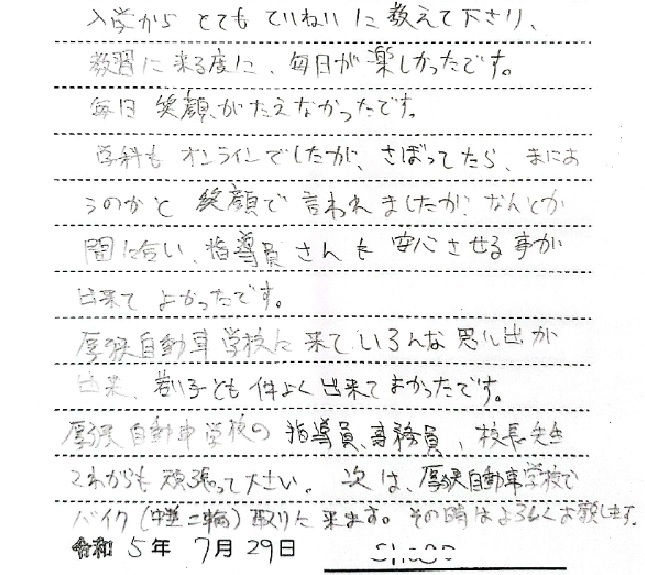 入学から とても ていねいに 教えて下さり、
教習に来る度に、毎日が楽しかったです。
毎日 笑顔がたえなかったです。
学科も オンラインでしたが、さぼってたら、まにあ
うのかと 笑顔で 言われましたが なんとか
間に合い、指導員さんを 安心させる事が
出来て よかったです。
厚狭自動車学校に来て いろんな思い出が
出来、 子とも仲よく出来てよかったです。
厚狭自動車学校の 指導員、事務員、校長先生
これからも頑張って下さい。 次は、厚狭自動車学校で
バイク(中型二輪)取りに来ます。その時はよろしくお願します。
令和 5年 7月 29日